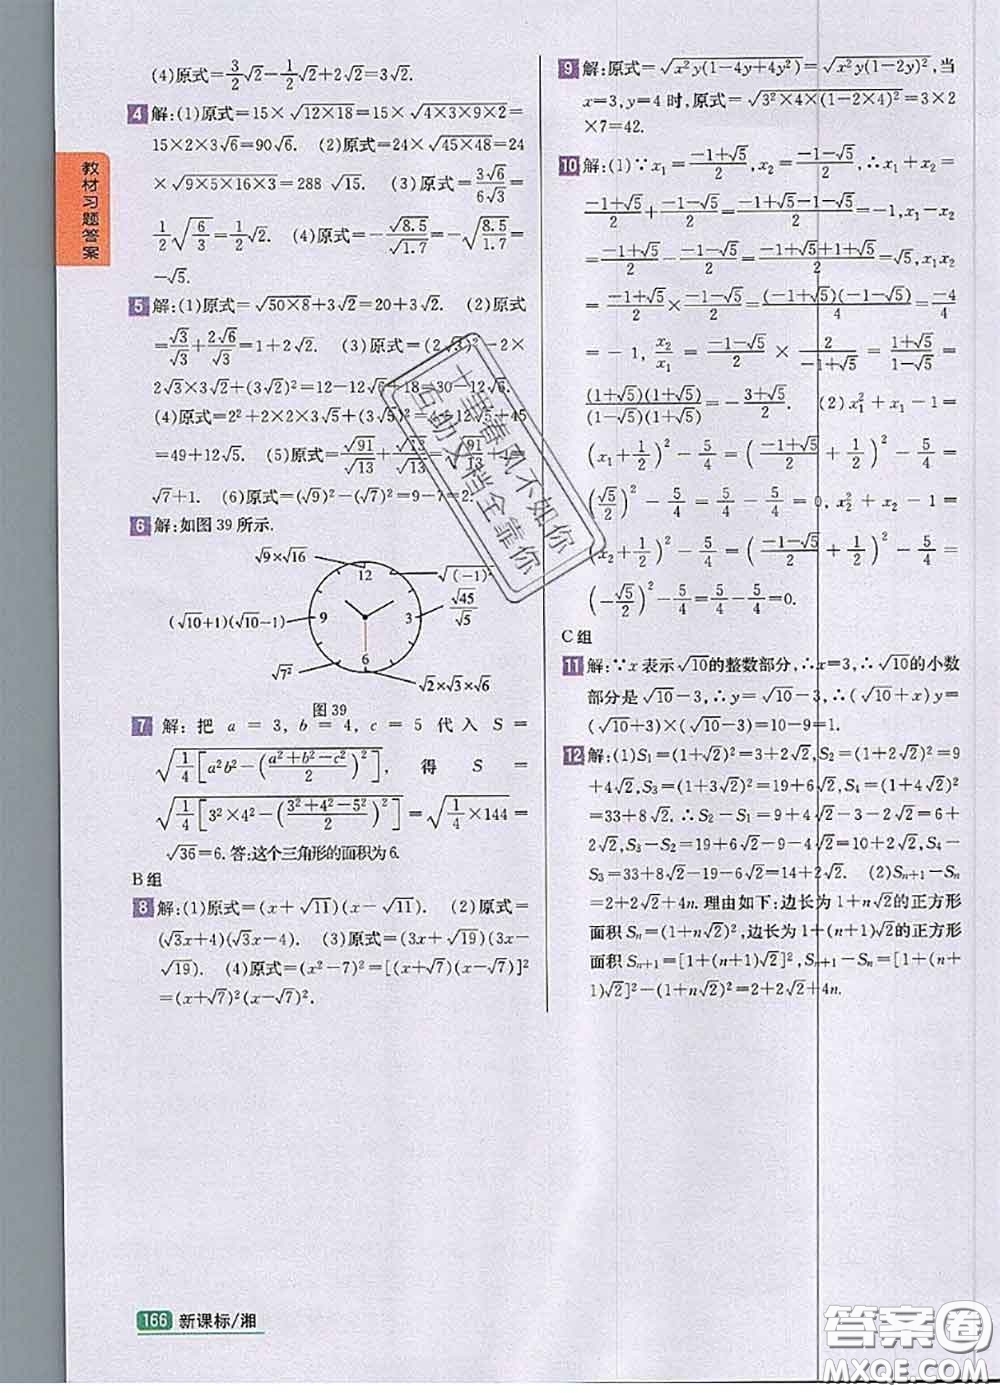 教材习题答案
(4)原式=3/2√2-1/2√2+2√2=3√2.
4 解:(1)原式=15×√(12×18)=15×√(4×3×9×2)=
15×2×3√6=90√6. (2)原式=24×√(45×48)=24
×√(9×5×16×3)=288 √15. (3)原式=3√6/6√3=
1/2√(6/3)=1/2√2. (4)原式=-√8.5/√1.7=-√(8.5/1.7)=
-√5.
5 解:(1)原式=√(50×8)+3√2=20+3√2. (2)原式
=√3/√3+2√6/√3=1+2√2. (3)原式=(2√3)²-2×
2√3×3√2+(3√2)²=12-12√6+18=30-12√6.
(4)原式=2²+2×2×3√5+(3√5)²=4+12√5+45
=49+12√5. (5)原式=√91/√13+√13/√13=√(91/13)+1=
√7+1. (6)原式=(√9)²-(√7)²=9-7=2.
6 解:如图39所示.
√9×√16
12
√(-1)²
√45/√5
(√10+1)(√10-1)
9
3
6
√7²
√2×√3×√6
图39
7 解:把 a=3,b=4,c=5 代入 S=
√(1/4[a²b²-((a²+b²-c²)/2)²]), 得 S=
√(1/4[3²×4²-((3²+4²-5²)/2)²])=√(1/4×144)=
√36=6.答:这个三角形的面积为6.
B组
8 解:(1)原式=(x+√11)(x-√11). (2)原式=
(√3x+4)(√3x-4). (3)原式=(3x+√19)(3x-
√19). (4)原式=(x²-7)²=[(x+√7)(x-√7)]²
=(x+√7)²(x-√7)².
9 解:原式=√(x²y(1-4y+4y²))=√(x²y(1-2y)²),当
x=3,y=4时,原式=√(3²×4×(1-2×4)²)=3×2
×7=42.
10 解:(1)∵x₁=(-1+√5)/2,x₂=(-1-√5)/2,∴x₁+x₂=
(-1+√5)/2+(-1-√5)/2=(-1+√5-1-√5)/2=-1,x₁-x₂
=(-1+√5)/2-(-1-√5)/2=(-1+√5+1+√5)/2=√5,x₁x₂
=(-1+√5)/2×(-1-√5)/2=(-1+√5)(-1-√5)/4=-4/4
=-1,x₂/x₁=(-1-√5)/2×2/(-1+√5)=(1+√5)/(1-√5)=
(1+√5)(1+√5)/(1-√5)(1+√5)=(-3+√5)/2. (2)x₁²+x₁-1=
(x₁+1/2)²-5/4=((-1+√5)/2+1/2)²-5/4=
(√5/2)²-5/4=5/4-5/4=0,x₂²+x₂-1=
(x₂+1/2)²-5/4=((-1-√5)/2+1/2)²-5/4=
(-√5/2)²-5/4=5/4-5/4=0.
C组
11 解:∵x表示√10的整数部分,∴x=3,∴√10的小数
部分是√10-3,∴y=√10-3,∴(√10+x)y=
(√10+3)×(√10-3)=10-9=1.
12 解:(1)S₁=(1+√2)²=3+2√2,S₂=(1+2√2)²=9
+4√2,S₃=(1+3√2)²=19+6√2,S₄=(1+4√2)²
=33+8√2.∴S₂-S₁=9+4√2-3-2√2=6+
2√2,S₃-S₂=19+6√2-9-4√2=10+2√2,S₄-
S₃=33+8√2-19-6√2=14+2√2. (2)Sₙ₊₁-Sₙ
=2+2√2+4n.理由如下:边长为1+n√2的正方形
面积Sₙ=(1+n√2)²,边长为1+(n+1)√2的正方形
面积Sₙ₊₁=[1+(n+1)√2]²,Sₙ₊₁-Sₙ=[1+(n+
1)√2]²-(1+n√2)²=2+2√2+4n.
十里春风不如你
互助文档全靠你
166 新课标/湘
答案圈
MXQE.COM